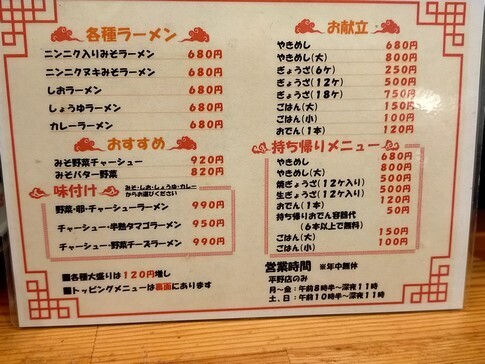 各種ラーメン
ニンニク入りみそラーメン 680円
ニンニクヌキみそラーメン 680円
しおラーメン 680円
しょうゆラーメン 680円
カレーラーメン 680円
おすすめ
みそ野菜チャーシュー 920円
みそバター野菜 820円
味付け
みそ・しお・しょうゆ・カレー
からお選びください
野菜・卵・チャーシューラーメン 990円
チャーシュー・半熟タマゴラーメン 950円
チャーシュー・野菜チーズラーメン 990円
■各種大盛りは120円増し
■トッピングメニューは裏面にあります
お献立
やきめし 680円
やきめし(大) 800円
ぎょうざ(6ケ) 250円
ぎょうざ(12ケ) 500円
ぎょうざ(18ケ) 750円
ごはん(大) 150円
ごはん(小) 100円
おでん(1本) 120円
持ち帰りメニュー
やきめし 680円
やきめし(大) 800円
焼ぎょうざ(12ケ入り) 500円
生ぎょうざ(12ケ入り) 500円
おでん(1本) 120円
持ち帰りおでん容器代 50円
(6本以上で無料)
ごはん(大) 150円
ごはん(小) 100円
営業時間 ※年中無休
平野店のみ
月～金:午前8時半～深夜11時
土、日:午前10時半～深夜11時